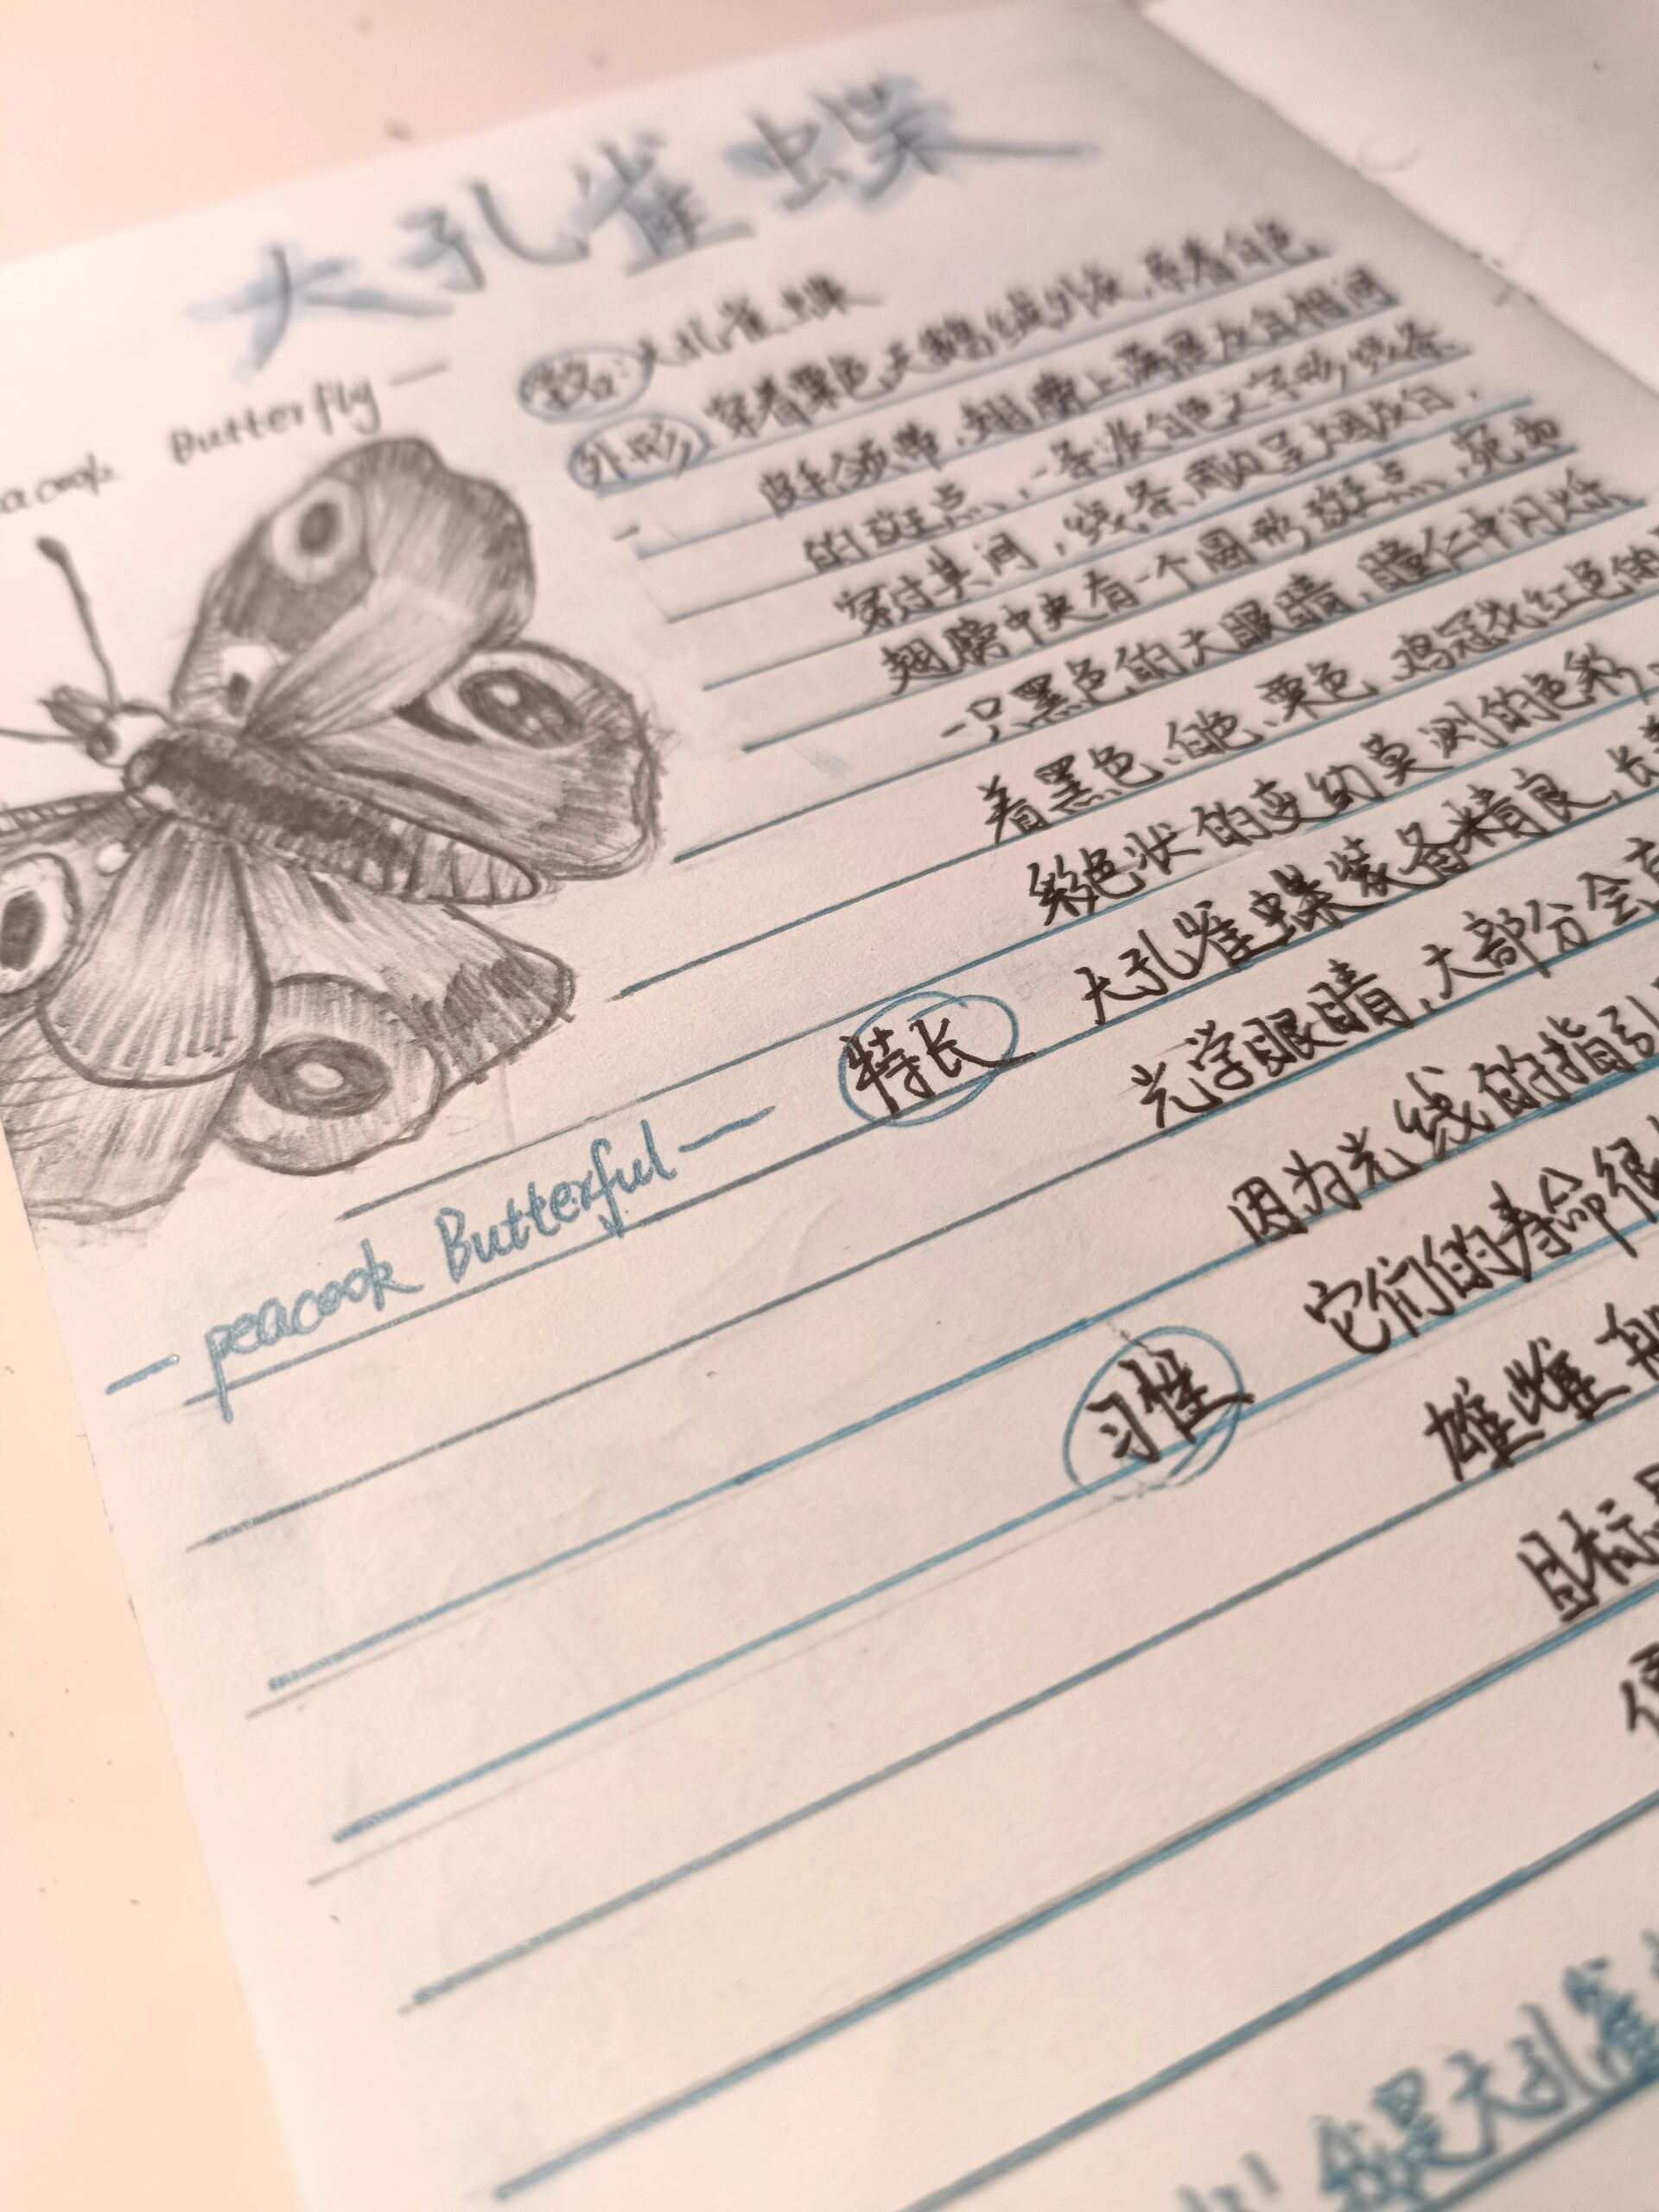 大孔雀蝶
Butterfly —
大孔雀蝶
外形 穿着栗色天鹅绒外衣,系着白色
皮毛领带,翅膀上满是灰白相间
的斑点,一条淡白色之字形线条
穿过其间,线条周边呈烟灰白,
翅膀中央有一个圆形斑点,宛如
一只黑色的大眼睛,瞳仁中闪烁
着黑色、白色、栗色、鸡冠花红色的
彩色状的变幻莫测的色彩,
特长 大孔雀蝶装备精良,长
光学眼睛,大部分会
因为光线的指引
习性 它们的寿命很
雄雌
目标
便
— peacook Butterful —
我是大孔雀